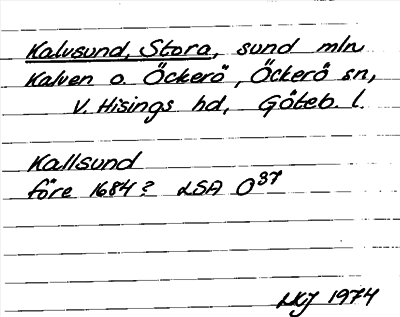 Kalvsund, Stora, sund mln
Kalven o. Öckerö, Öckerö sn,
V. Hisings hd, Göteb. l.
Kallsund
före 1684? LSA O37
LKJ 1974